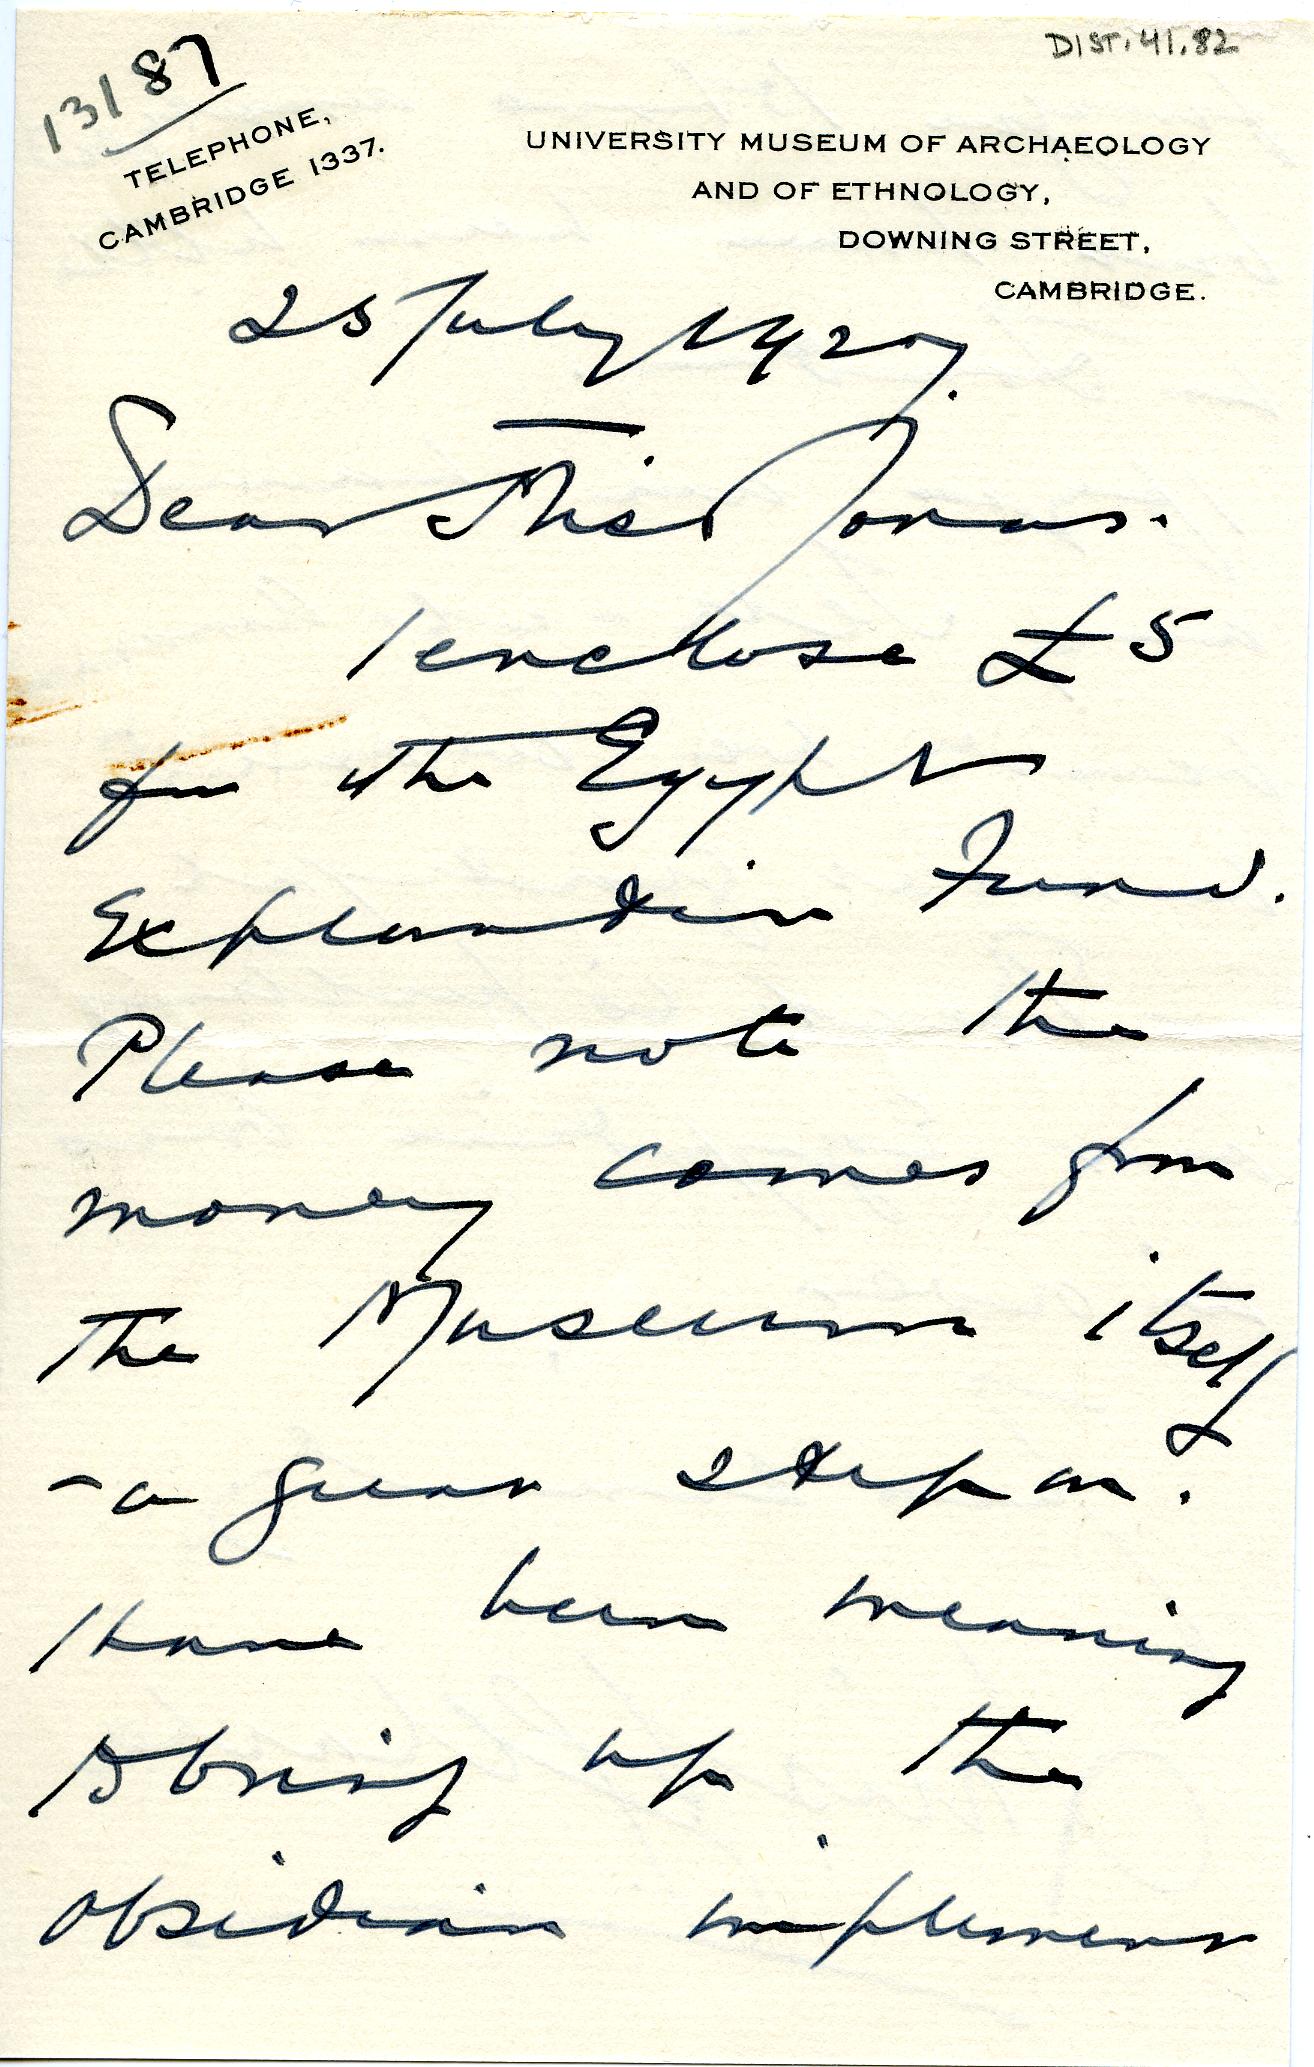 DIST. 41.82
13187
TELEPHONE,
CAMBRIDGE 1337.
UNIVERSITY MUSEUM OF ARCHAEOLOGY
AND OF ETHNOLOGY,
DOWNING STREET,
CAMBRIDGE.
25 July 1920.
Dear Miss Jonas.
I enclose £5
for the Egypt
Exploration Fund.
Please note the
money comes from
the Museum itself
- a great step on.
I have been meaning
to bring up the
obsidian implement